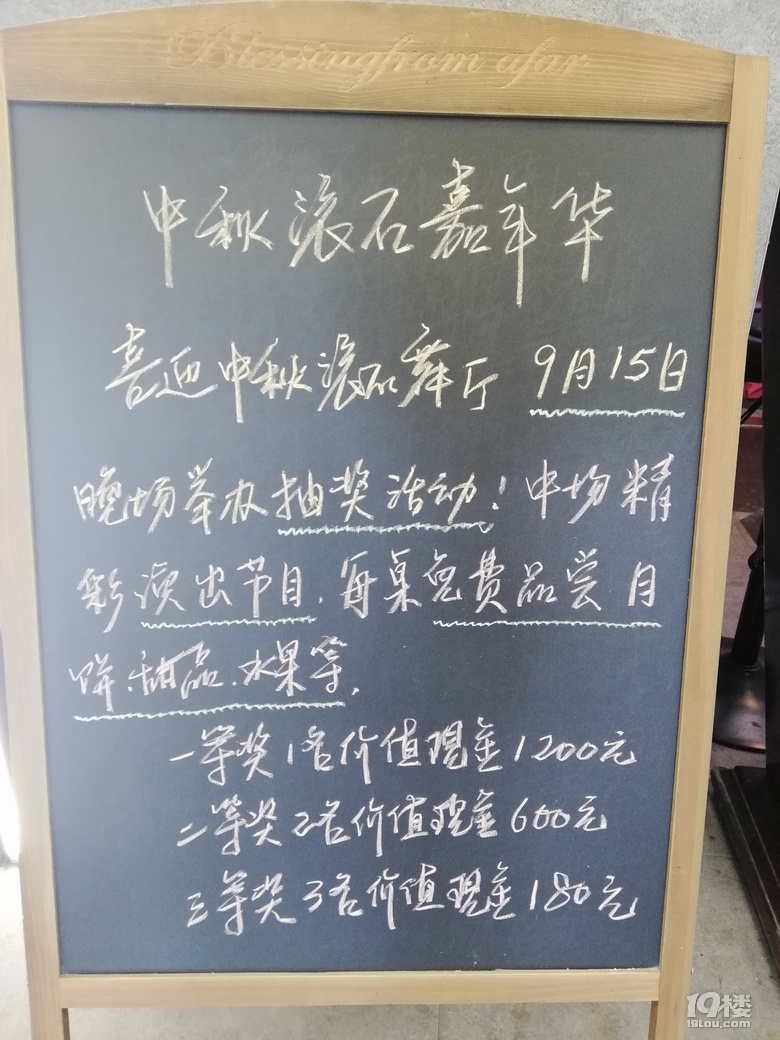 Blessingfrom afar
中秋滚石嘉年华
喜迎中秋滚石舞厅 9月15日
晚场举办抽奖活动！中场精
彩演出节目.每桌免费品尝月
饼.甜品.水果等.
一等奖1名价值现金1200元
二等奖2名价值现金600元
三等奖3名价值现金180元
19楼
19lou.com